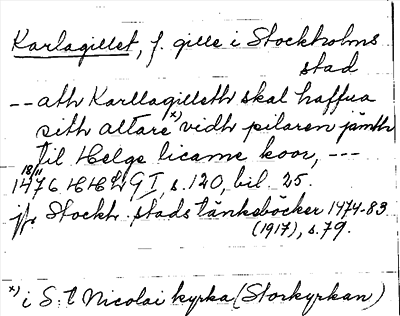 Karlagillet, f. gille i Stockholms
stad
-- ath Karllagilleth skal haffua
sith altare x) vidh pilaren jämth
til Helge licame koor, ---
18/11
1476 HHLGI, s. 120, bil. 25.
jfr Stockh. stads tänkeböcker 1474-83
(1917), s. 79.
x) i S:t Nicolai kyrka (Storkyrkan)